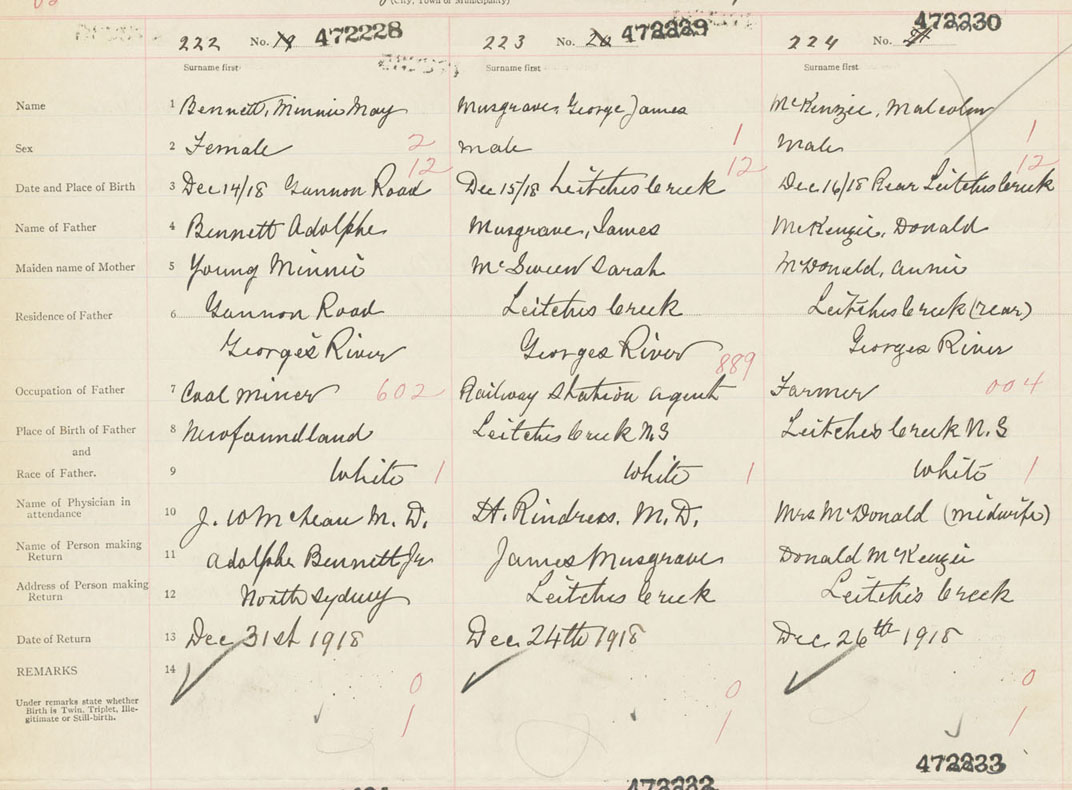 (City, Town or Municipality)
222 No. 19 472228 223 No. 20 472229 224 No. 21 472230
Surname first Surname first Surname first
Name 1 Bennett, Minnie May Musgrave, George James McKenzie, Malcolm
Sex 2 Female 2 male 1 male 1
12 12 12
Date and Place of Birth 3 Dec 14/18 Gannon Road Dec 15/18 Leitches Creek Dec 16/18 Rear Leitches Creek
Name of Father 4 Bennett Adolphe Musgrave, James McKenzie, Donald
Maiden name of Mother 5 Young Minnie McSween Sarah McDonald, Annie
Residence of Father 6 Gannon Road Leitches Creek Leitches Creek (rear)
Georges River Georges River Georges River
889
Occupation of Father 7 Coal miner 602 Railway Station agent Farmer 004
Place of Birth of Father 8 Newfoundland Leitches Creek N.S Leitches Creek N.S
and
Race of Father. 9 White 1 White 1 White 1
Name of Physician in
attendance 10 J. W McLean M.D. H. Rindress. M.D. Mrs McDonald (midwife)
Name of Person making
Return 11 Adolphe Bennett Jr James Musgrave Donald McKenzie
Address of Person making
Return 12 North Sydney Leitches Creek Leitches Creek
Date of Return 13 Dec 31st 1918 Dec. 24th 1918 Dec. 26th 1918
REMARKS 14
0 0 0
Under remarks state whether
Birth is Twin, Triplet, Ille-
gitimate or Still-birth.
1 1 1
472233
472232